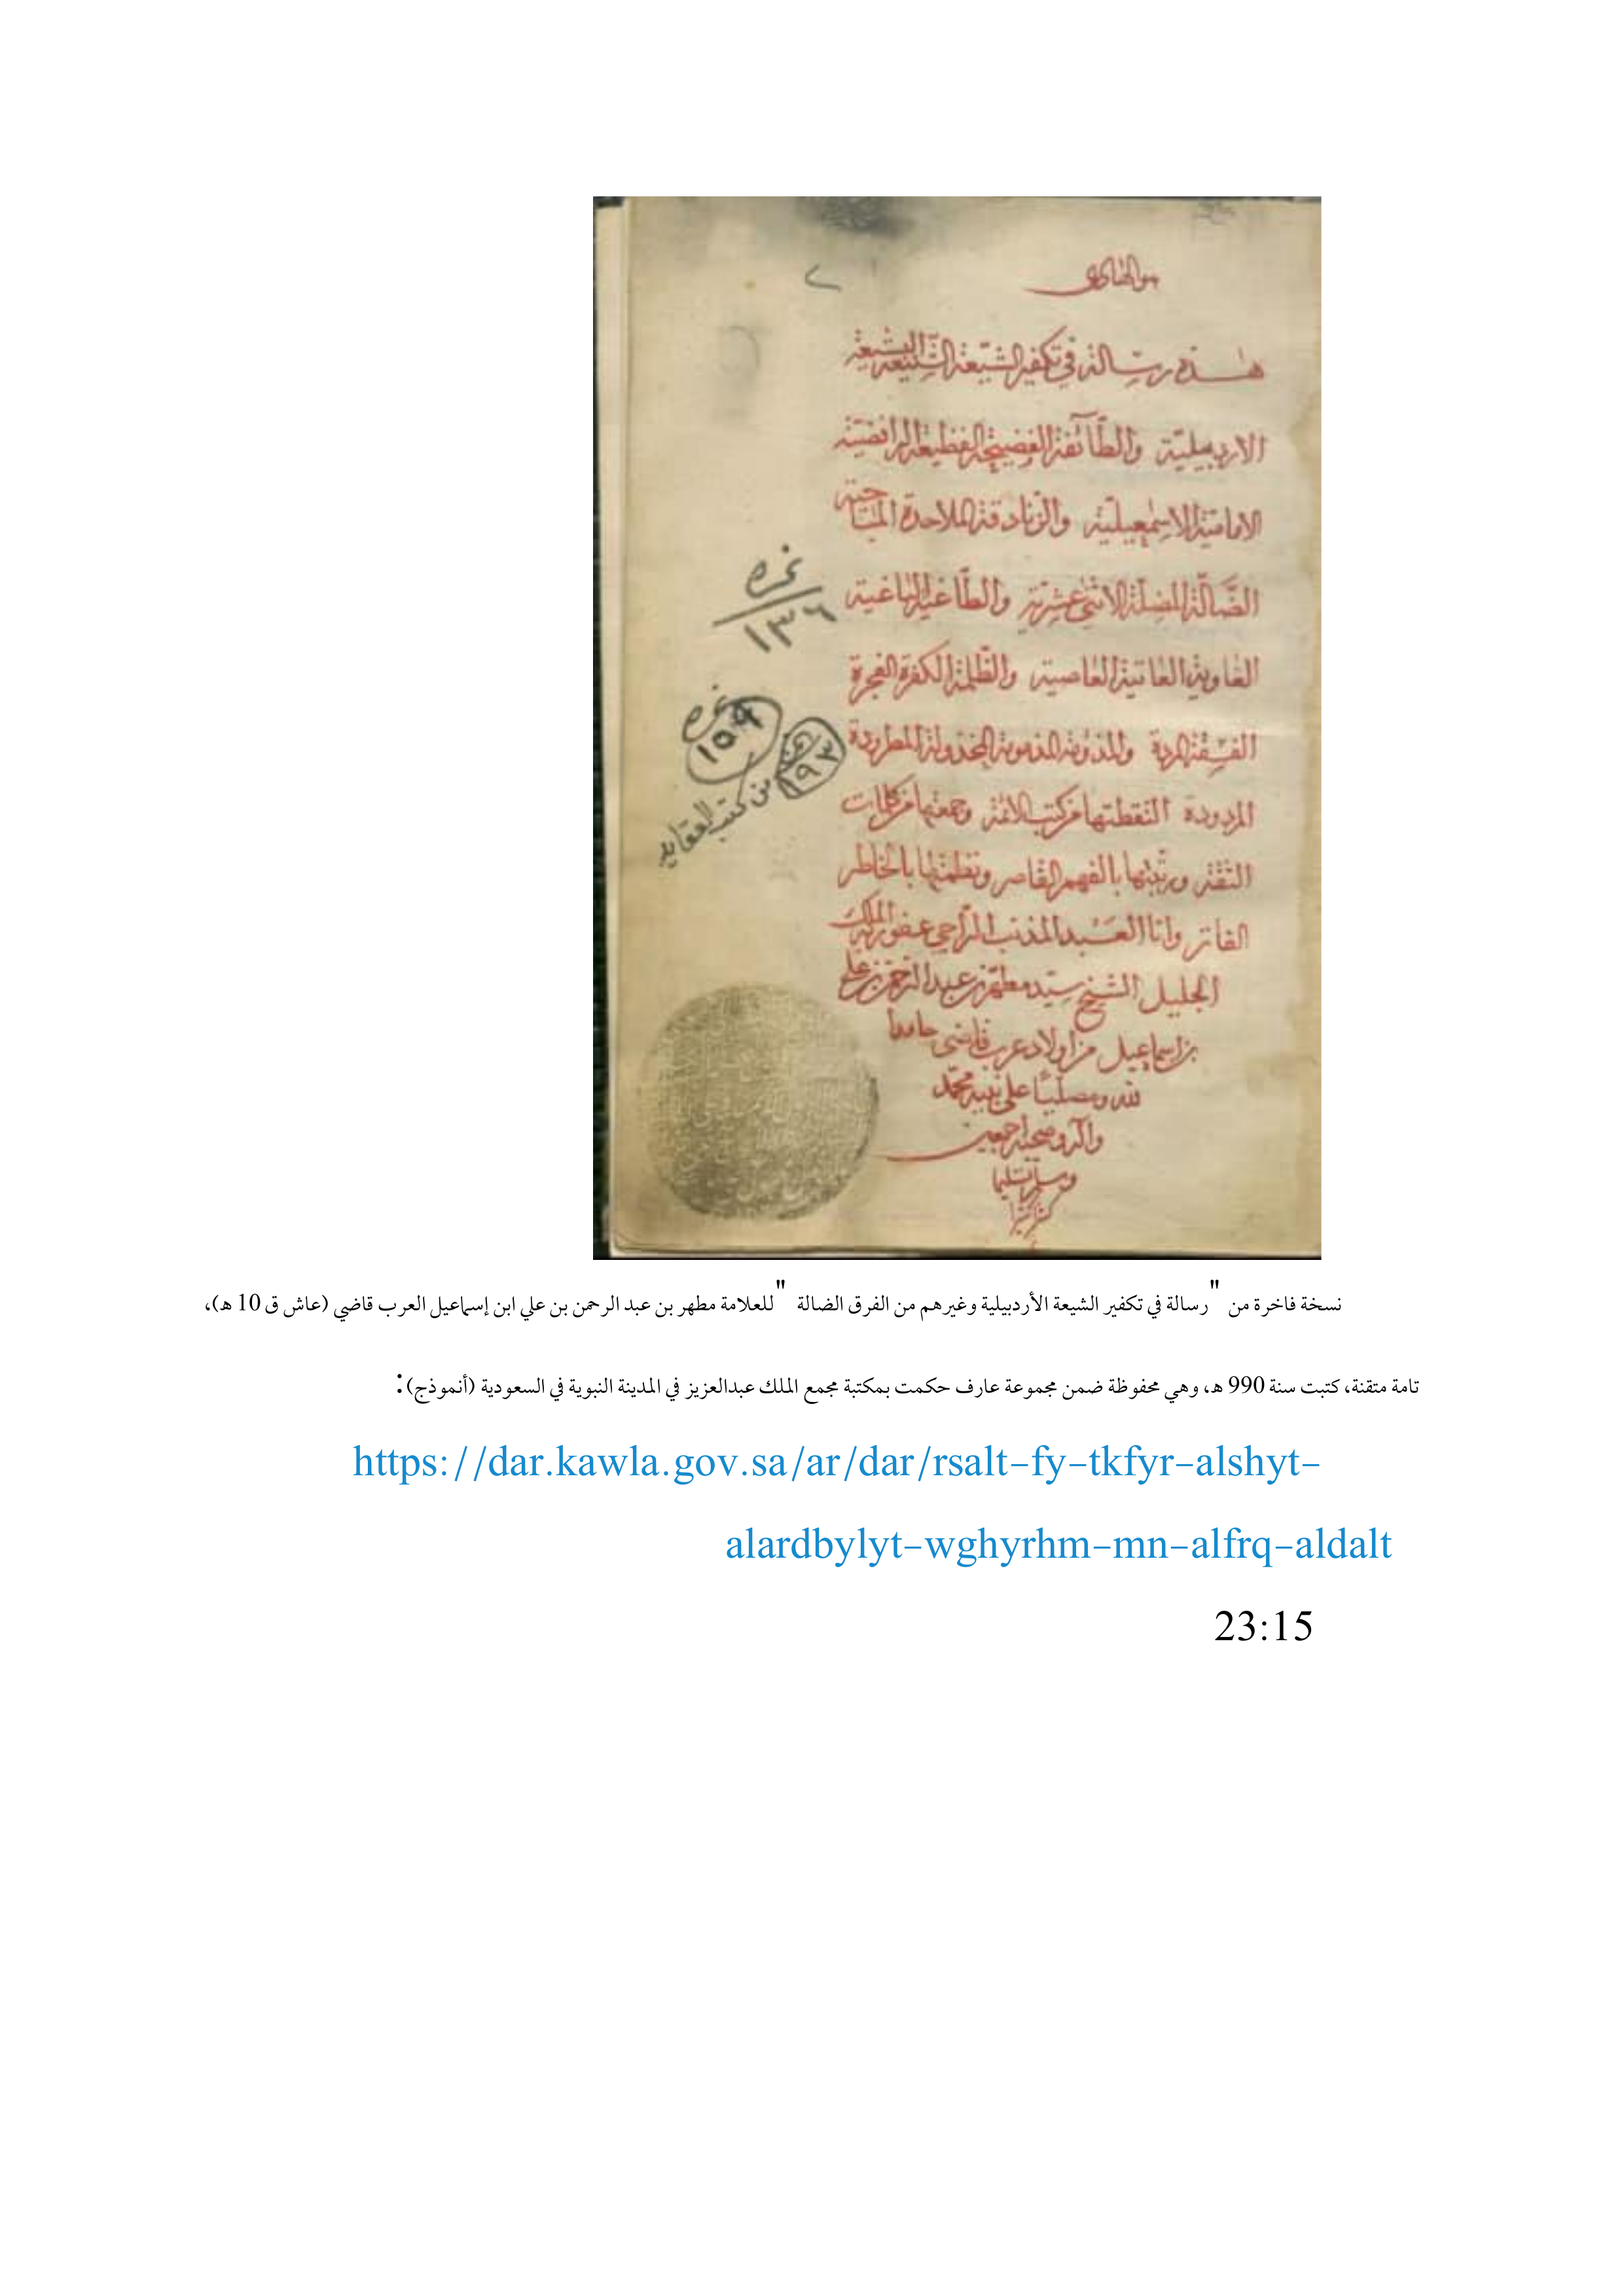 هو الهادي
هذه رسالة في تكفير الشيعة الشنيعة البشيعة
الاردبيلية والطائفة الفضيحة الفظيعة الرافضية
الامامية الاسمعيلية والزنادقة الملاحدة المباحية
الضالة المضلة الاثنى عشرية والطاغية الباغية
الغاوية العاتية العاصية والظلمة الكفرة الفجرة
الفسقة المردة المذمومة المخذولة المطرودة
المردودة التقطتها من كتب الائمة وجمعتها من كلمات
الثقة ورتبتها بالفهم القاصر ونظمتها بالخاطر
الفاتر وانا العبد المذنب الراجي عفو ربه الملك
الجليل الشيخ سيد مطهر بن عبد الرحمن بن علي
بن اسماعيل من اولاد عرب قاضى حامدا
لله ومصليا على نبيه محمد
واله وصحبه اجمعين
وسلم تسليما
كثيرا
نمره
١٣٦
نمره
١٥٩
١٩٣
من كتب العقايد
نسخة فاخرة من "رسالة في تكفير الشيعة الأردبيلية وغيرهم من الفرق الضالة "للعلامة مطهر بن عبد الرحمن بن علي ابن إسماعيل العرب قاضي (عاش ق 10 هـ)،
تامة متقنة، كتبت سنة 990 هـ، وهي محفوظة ضمن مجموعة عارف حكمت بمكتبة مجمع الملك عبدالعزيز في المدينة النبوية في السعودية (أنموذج):
https://dar.kawla.gov.sa/ar/dar/rsalt-fy-tkfyr-alshyt-
alardbylyt-wghyrhm-mn-alfrq-aldalt
23:15